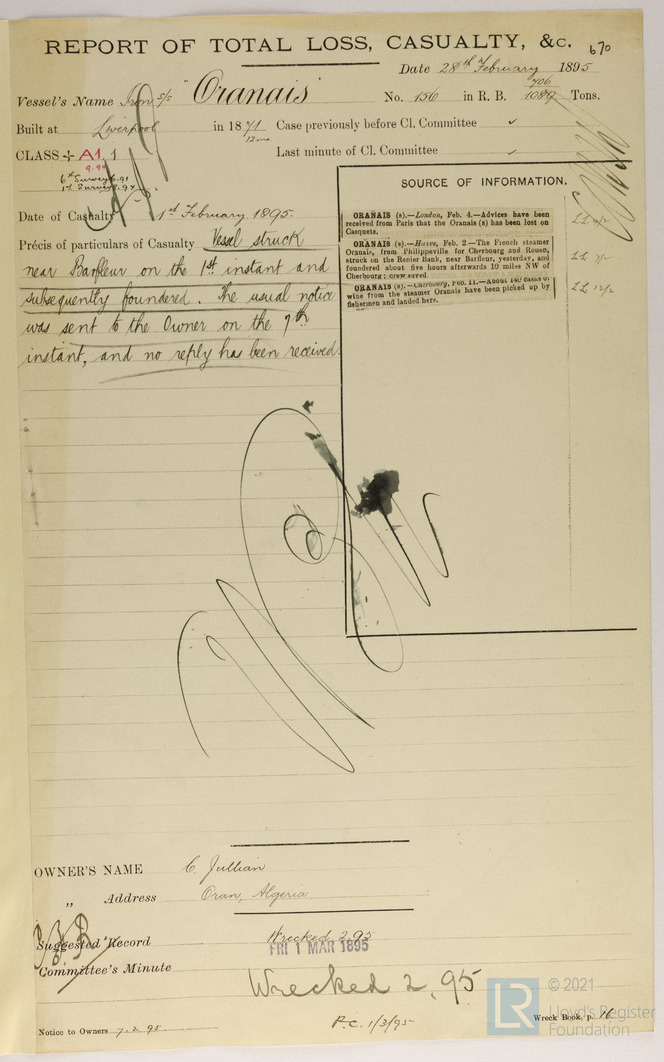 REPORT OF TOTAL LOSS, CASUALTY, &c. 670
Date 28th February 1895
Vessel's Name Iron s/s "Oranais" No. 156 in R. B. 706 1089 Tons.
Built at Liverpool in 1871 12mo Case previously before Cl. Committee ✓
CLASS + A1.1 Last minute of Cl. Committee ✓
9.94
6th Survey 6.91
1st Survey 8.94
SOURCE OF INFORMATION.
Date of Casualty 1st February 1895.
Précis of particulars of Casualty Vessel struck
near Barfleur on the 1st instant and
subsequently foundered. The usual notice
was sent to the Owner on the 7th
instant, and no reply has been received.
ORANAIS (s).—London, Feb. 4.—Advices have been
received from Paris that the Oranais (s) has been lost on
Casquets.
ORANAIS (s).—Havre, Feb. 2.—The French steamer
Oranais, from Philippeville for Cherbourg and Rouen,
struck on the Renier Bank, near Barfleur, yesterday, and
foundered about five hours afterwards 10 miles NW of
Cherbourg; crew saved.
LL 7/2
ORANAIS (s).—Cherbourg, Feb. 11.—About 140 casks of
wine from the steamer Oranais have been picked up by
fishermen and landed here.
LL 12/2
OWNER'S NAME C. Jullian
„ Address Oran, Algeria
Suggested Record Wrecked 2.95
FRI 1 MAR 1895
Committee's Minute
Wrecked 2,95
Notice to Owners 7.2.95
P.C. 1/3/95
Wreck Book, p. 16
LR
© 2021
Lloyd's Register
Foundation